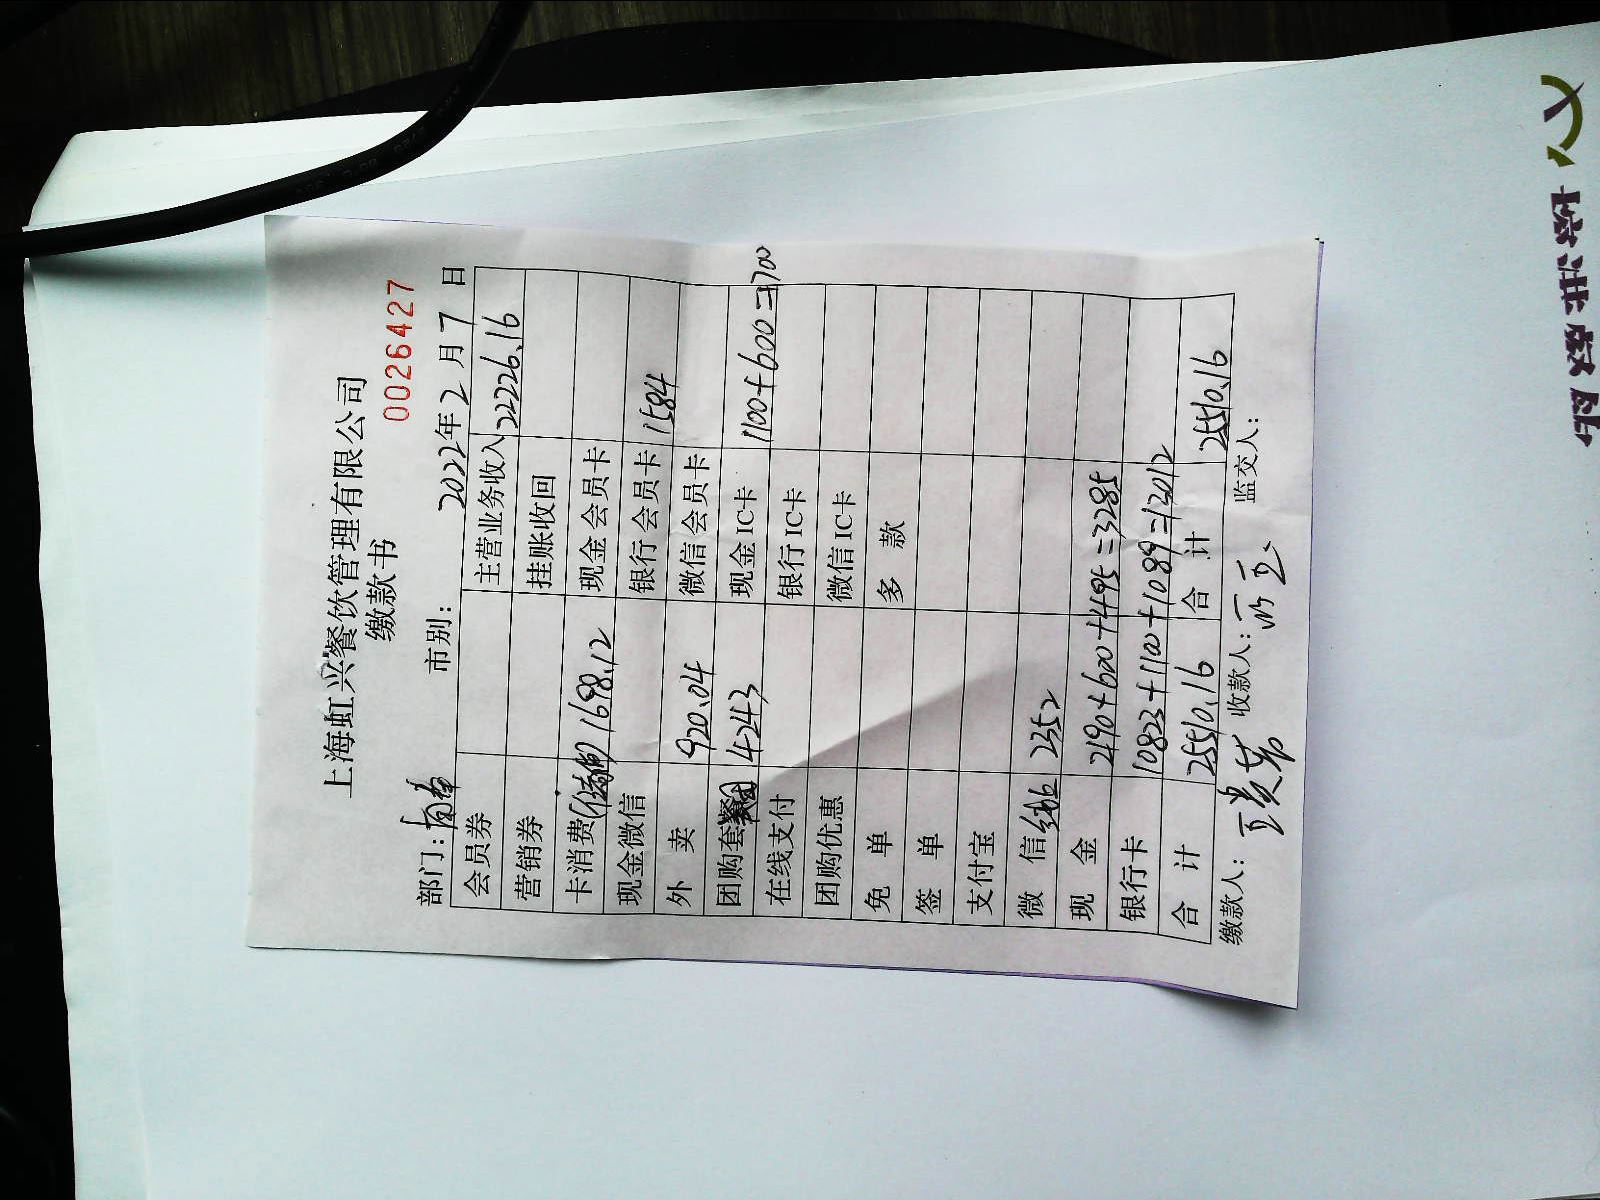 上海虹兴餐饮管理有限公司
缴款书
0026427
部门：
市别：
2022年2月7日
会员券 主营业务收入 22226.16
营销券 挂账收回
卡消费 1698.12 现金会员卡
现金微信 银行会员卡 1584
外卖 920.04 微信会员卡
团购套餐 4243 现金IC卡 1100+600=1700
在线支付 银行IC卡
团购优惠 微信IC卡
免单 多款
签单
支付宝
微信 2352
现金 2190+600+495=3285
银行卡 10823+1100+1089=13012
合计 25510.16 合计 25510.16
缴款人： 收款人： 监交人：